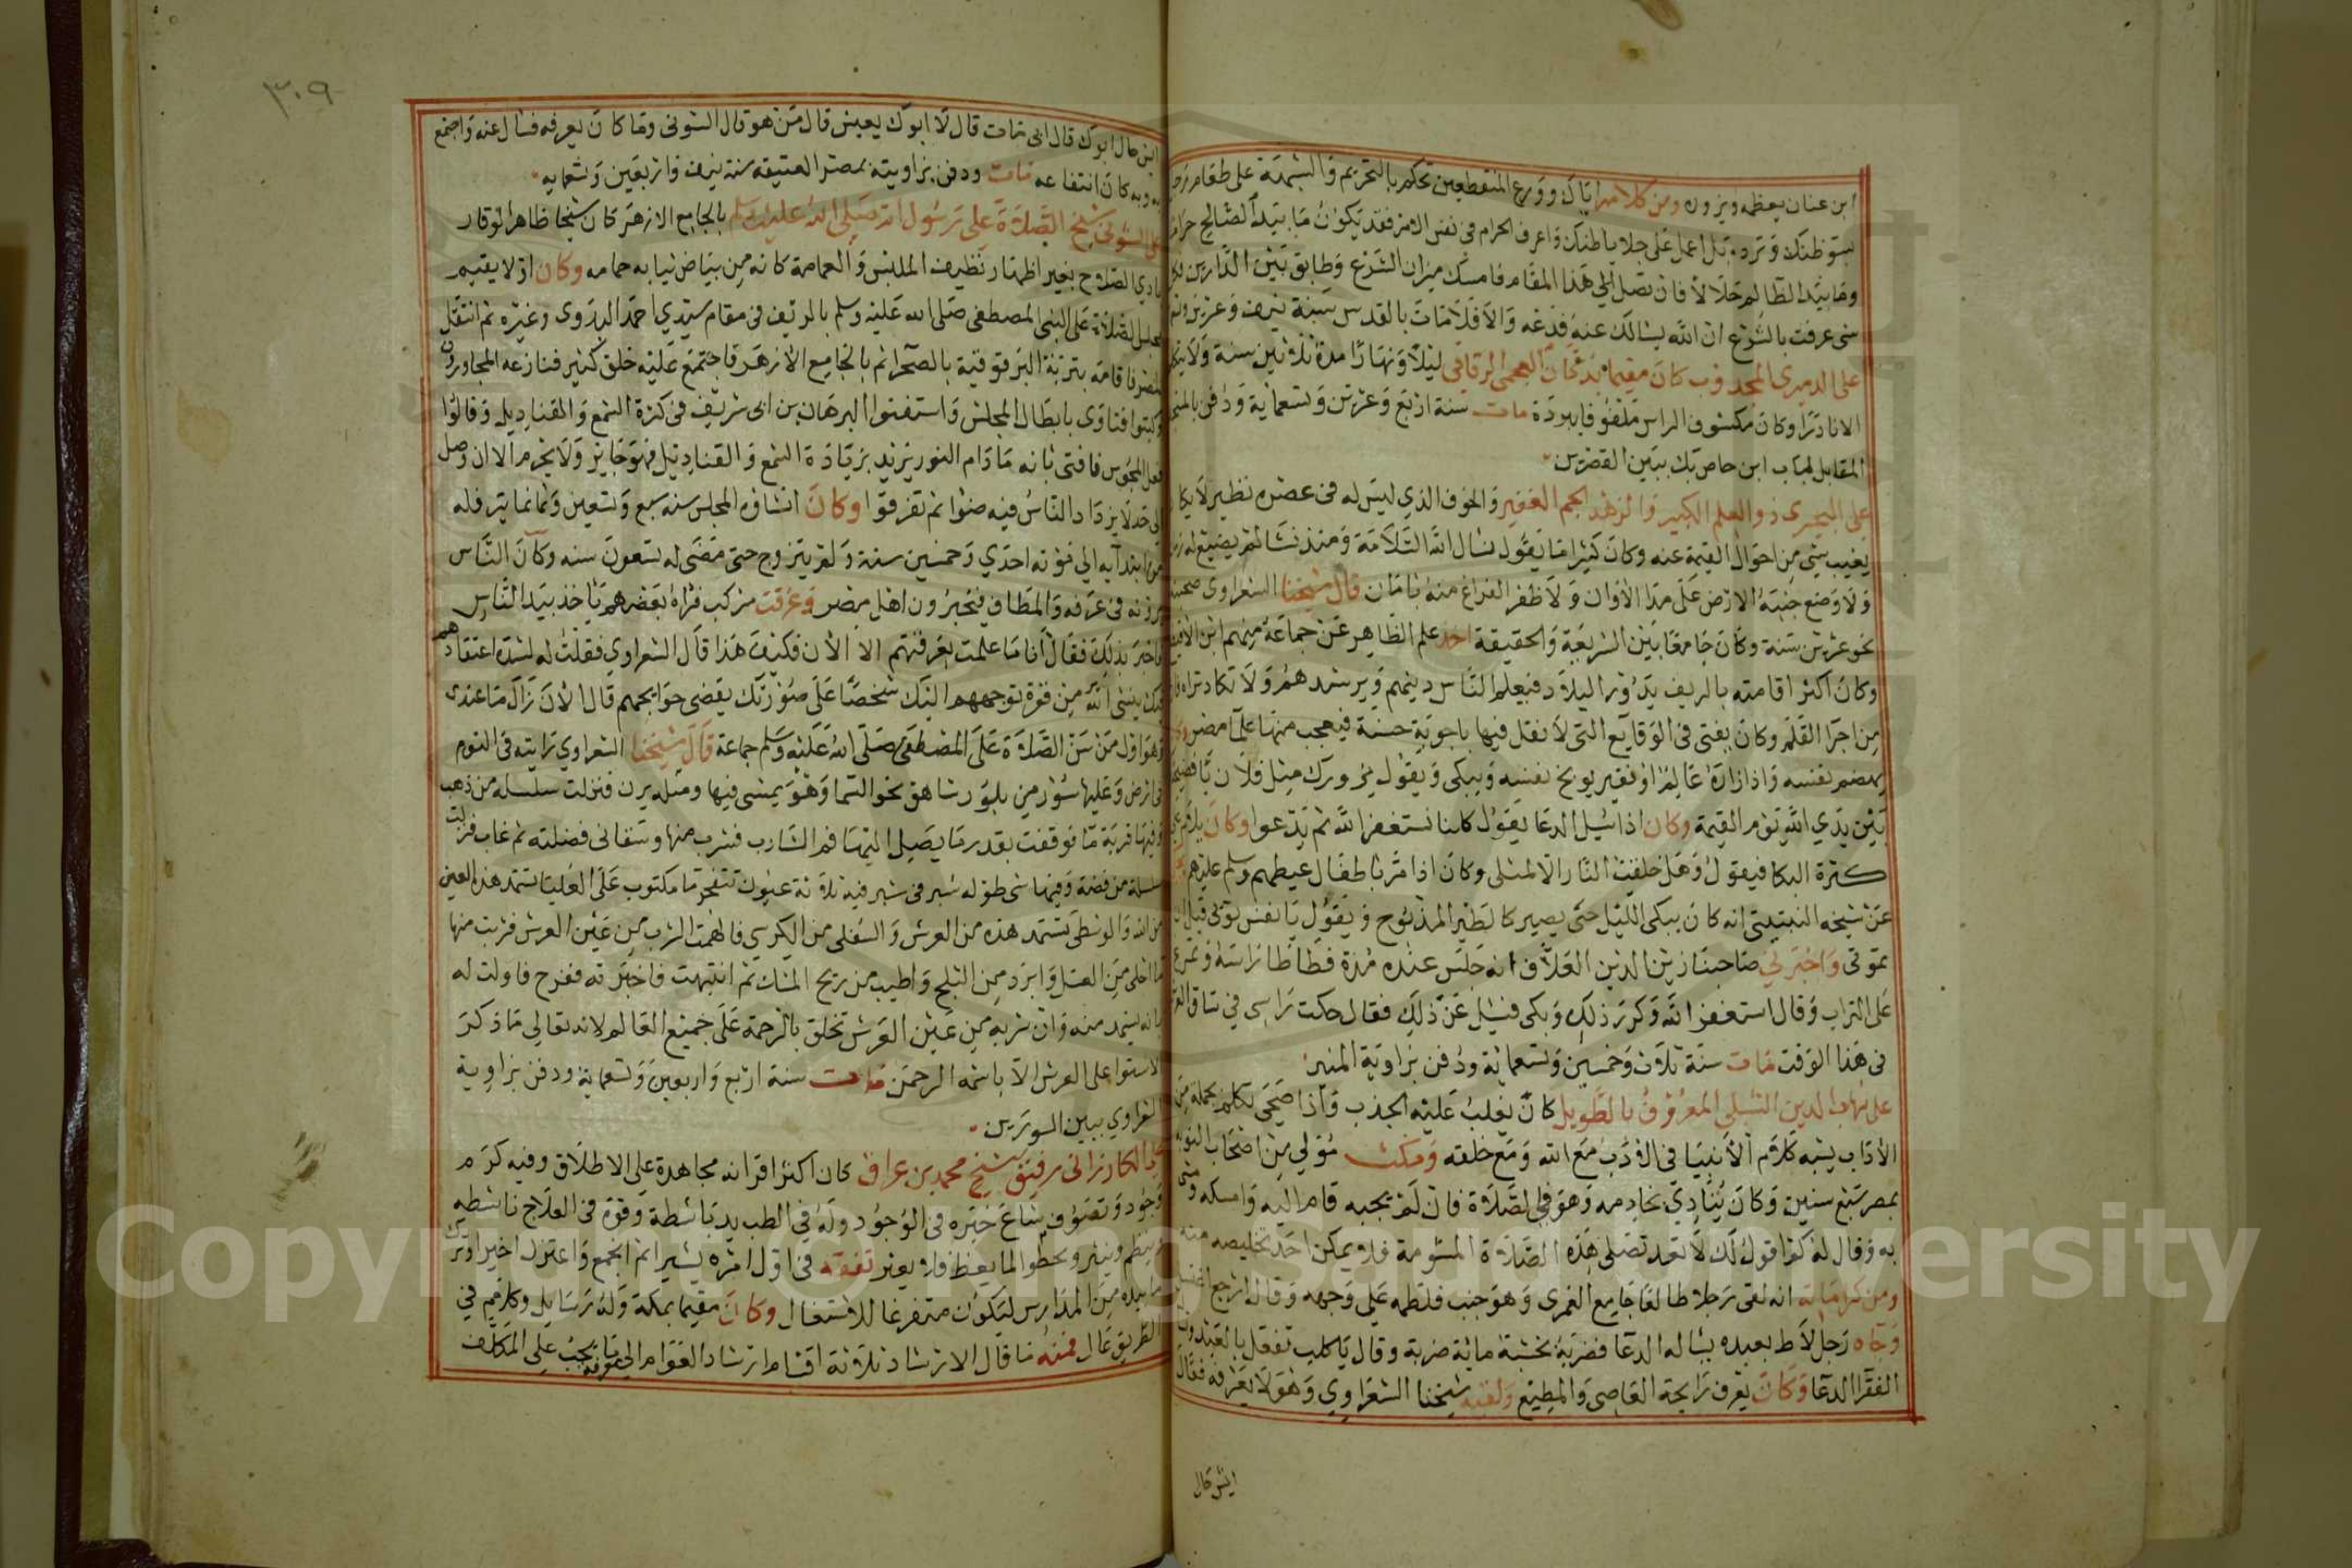 ابن عنان يعظمه ويزوره ومن كلامه اياك وورع المتقطعين تحكم بالتحريم والشبهة على طعام
بسوظنك وترده بل اعمل على جلا باطنك واعرف الحرام في نفس الامر فقد يكون ما بيد الصالح حرام
وما بيد الظالم حلالا فان تصل الي هذا المقام فامسك ميزان الشرع وطابق بين الدارين
متى عرفت بالشرع ان الله يسالك عنه فدعه والا فلا مات بالقدس سنة نيف وعشرين
على الدميري المجدوب كان مقيما بدكان العجمي الرقاقى ليلا ونهارا مدة ثلاثين سنة ولا
الا نادرا وكان مكشوف الراس ملفوفا ببردة مات سنة اربع وعشرين وتسعماية ودفن
المقابل لباب ابن خاص بك ببين القصرين
على البحيرى ذو العلم الكبير والزهد الجم الغفير والخوف الذي ليس له في عصره نظير لا يكا
يغيب شي من احوال القيمة عنه وكان كثيرا ما يقول نسال الله السلامة ومنذ نشا لم يضيع له
ولا وضع جنبه الارض على مدا الاوان ولا ظفر الفراغ منه بامان قال شيخنا الشعراوى صحبته
نحو عشرين سنة وكان جامعا بين الشريعة والحقيقة اخذ علم الظاهر عن جماعة منهم ابن
وكان اكثر اقامته بالريف يدور البلاد فيعلم الناس دينهم ويرشدهم ولا تكاد تراه
من اجرا القلم وكان يفتى في الوقايع التى لا نقل فيها باجوبة حسنة فيعجب منها علما مصر
يهضم نفسه واذا زاره عالم او فقير يوبخ نفسه ويبكى ويقول يزورك مثل فلان يا
بين يدي الله يوم القيمة وكان اذا سيل الدعا يقول كلنا نستغفر الله ثم يدعوا وكان
كثرة البكا فيقول وهل خلقت النار الا لمثلى وكان اذا مر باطفال عيطهم وسلم عليهم
عن شيخه النبتيتى انه كان يبكى الليل حتى يصير كالطير المذبوح ويقول يا نفس توبى قبل ان
تموتى واخبرني صاحبنا زين الدين العلاف انه جلس عنده مدة فطاطا راسه وتمرغ
على التراب وقال استغفر الله وكرر ذلك وبكى فسيل عن ذلك فقال حكت راسى في ساق
في هذا الوقت مات سنة ثلاث وخمسين وتسعماية ودفن بزاوية المنير
على شهاب الدين النشيلى المعروف بالطويل كان يغلب عليه الجذب واذا صحى تكلم بجمله من
الاداب يشبه كلام الانبيا في الادب مع الله ومع خلقه ومكث مولي من اصحاب النوبه
بمصر سبع سنين وكان ينادي بخادمه وهو في الصلاة فان لم يجبه قام اليه وامسكه ومشى
به وقال له كم اقول لك لا تعد تصلي هذه الصلاة المشومة فلا يمكن احد تخليصه منه
ومن كراماته انه لقى رجلا طالعا جامع الغمرى وهو جنب فلطمه على وجهه وقال ارجع اغتسل
وجاه رجل لاط بعبده يساله الدعا فضربه بخشبة ماية ضربة وقال يا كلب تفعل بالعبد وتسال
الفقرا الدعا وكان يعرف رايحة العاصي والمطيع ولقيه شيخنا الشعراوي وهو لا يعرفه فقال
ايش حال
٣٠٩
ايش حال ابوك قال ابى مات قال لا ابوك يعيش قال من هو قال الشونى وما كان يعرفه فسال عنه واجتمع
به وبه كان انتفاعه مات ودفن بزاويته بمصر العتيقه سنه نيف واربعين وتسعمايه
على الشونى شيخ الصلاة على رسول الله صلى الله عليه وسلم بالجامع الازهر كان شيخا ظاهر الوقار
بادي الصلاح بغير اظهار نظيف الملبس والعمامة كانه من بياض ثيابه حمامه وكان اولا يقيم
مجلس الصلاة على النبى المصطفى صلى الله عليه وسلم بالريف في مقام سيدي احمد البدوى وغيره ثم انتقل
لمصر فاقامه بتربة البرقوقية بالصحرا ثم بالجامع الازهر فاجتمع عليه خلق كثير فنازعه المجاورون
وكتبوا فتاوى بابطال المجلس واستفتوا البرهان بن ابى شريف في كثرة الشمع والقناديل وقالوا
فعل المجوس فافتى بانه مادام النور يزيد بزيادة الشمع والقناديل فهو جايز ولا يحرم الا ان وصل
الى حد لا يزداد الناس فيه ضوا ثم تفرقوا وكان انشاؤه المجلس سنه سبع وتسعين وثمانماية فله
من ابتدايه الي فوته احدي وخمسين سنة ولم يتزوج حتى مضى له تسعون سنه وكان الناس
يرونه في عرفه والمطاف فيخبرون اهل مصر وغرقت مركب فراه بعضهم ياخذ بيد الناس
فاخبر بذلك فقال انا ما علمت بغرقتهم الا الان فكيف هذا قال الشعراوي فقلت له لشدة اعتقادهم
فيك ينشى الله من قوة توجههم اليك شخصا على صورتك يقضى حوايجهم قال الان زال ما عندى
وهو اول من سن الصلاة على المصطفى صلى الله عليه وسلم جماعة قال شيخنا الشعراوي رايته في النوم
في ارض وعليها سور من بلور شاهق نحو السما وهو يمشى فيها ومثله يرن فنزلت سلسله من ذهب
وفيها قربة ما فوقفت بقدر ما يصل اليها فم الشارب فشرب منها وسقانى فضلته ثم غاب فنزلت
سلسلة من فضة وفيها شى طوله شبر في شبر فيه ثلاثة عيون تتفجر ما مكتوب على العليا تستمد هذه العين
من الله والوسطى تستمد هذه من العرش والسفلى من الكرسي فالهمت الشرب من عين العرش فشربت منها
ما احلى من العسل وابرد من الثلج واطيب من ريح المسك ثم انتبهت فاخبرته ففرح فاولت له
بانه يستمد منه وان شربه من عين العرش تخلق بالرحمة على جميع العالم لانه تعالى ما ذكر
الاستوا على العرش الا باسمه الرحمن مات سنة اربع واربعين وتسعماية ودفن بزاوية
الشعراوي ببين السورين
على الكازرانى رفيق شيخ محمد بن عراق كان اكثر اقرانه مجاهدة على الاطلاق وفيه كرم
وجود وتصوف شاع خبره في الوجود وله في الطب يد باسطة وقوة في العلاج ناشطه
ينظم وينثر ويحطوا لما يعظ فلا يعثر تفقه في اول امره يسيرا ثم انجمع واعتزل اخيرا وترك
ما بيده من المدارس ليكون متفرغا للاشتغال وكان مقيما بمكة وله رسايل وكلام في
الطريق عال فمنه ما قال الارشاد ثلاثة اقسام ارشاد العوام الى معرفة ما يجب على المكلف